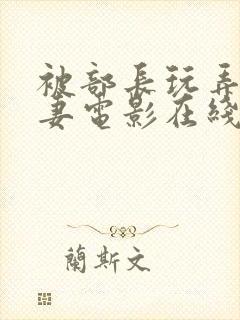 被部長玩弄
妻電影在綫
蘭斯文